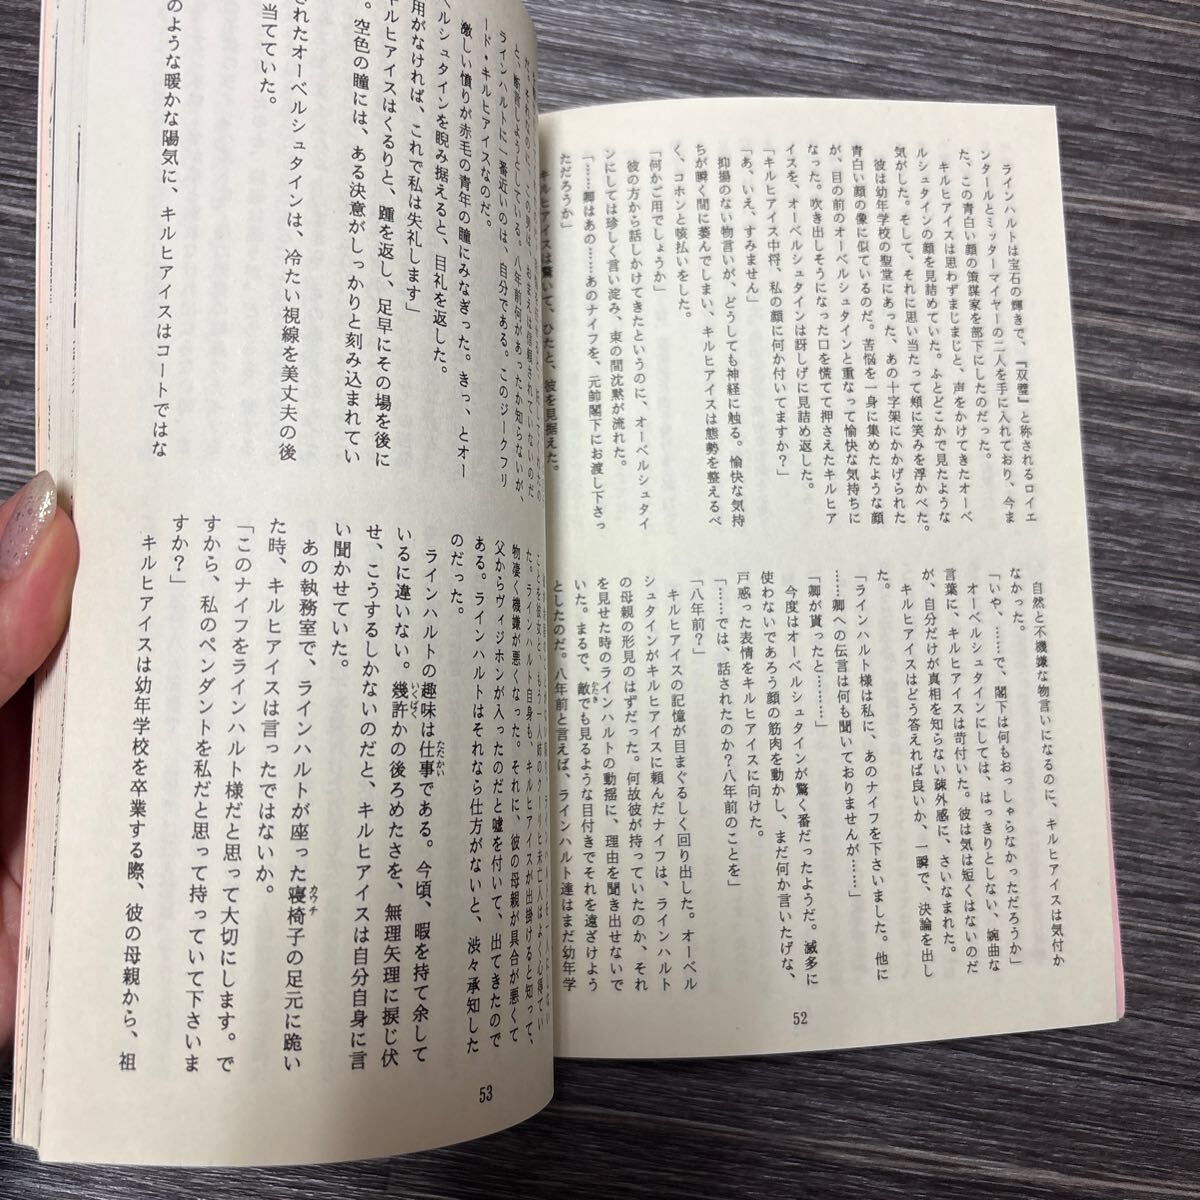 ラインハルトは宝石の輝きで、『双璧』と称されるロイエ
ンタールとミッターマイヤーの二人を手に入れており、今ま
た、この青白い顔の策謀家を部下にしたのだった。
キルヒアイスは思わずまじまじと、声をかけてきたオーベ
ルシュタインの顔を見詰めていた。ふとどこかで見たような
気がした。そして、それに思い当たって頬に笑みを浮かべた。
彼は幼年学校の聖堂にあった、あの十字架にかかげられた
青白い顔の像に似ているのだ。苦悩を一身に集めたような顔
が、目の前のオーベルシュタインと重なって愉快な気持ちに
なった。吹き出しそうになった口を慌てて押さえたキルヒア
イスを、オーベルシュタインは訝しげに見詰め返した。
「キルヒアイス中将、私の顔に何か付いてますか？」
「あ、いえ、すみません」
抑揚のない物言いが、どうしても神経に触る。愉快な気持
ちが瞬く間に萎んでしまい、キルヒアイスは態勢を整えるべ
く、コホンと咳払いをした。
「何かご用でしょうか」
彼の方から話しかけてきたというのに、オーベルシュタイ
ンにしては珍しく言い淀み、束の間沈黙が流れた。
「……卿はあの……あのナイフを、元前閣下にお渡し下さっ
ただろうか」
キルヒアイスは驚いて、ひたと、彼を見据えた。
自然と不機嫌な物言いになるのに、キルヒアイスは気付か
なかった。
「いや、……で、閣下は何もおっしゃらなかっただろうか」
オーベルシュタインにしては、はっきりとしない、婉曲な
言葉に、キルヒアイスは苛付いた。彼は気は短くはないのだ
が、自分だけが真相を知らない疎外感に、さいなまれた。
キルヒアイスはどう答えれば良いか、一瞬で、決論を出し
た。
「ラインハルト様は私に、あのナイフを下さいました。他に
……卿への伝言は何も聞いておりませんが……」
「卿が貰ったと………」
今度はオーベルシュタインが驚く番だったようだ。滅多に
使わないであろう顔の筋肉を動かし、まだ何か言いたげな、
戸惑った表情をキルヒアイスに向けた。
「……では、話されたのか？八年前のことを」
「八年前？」
キルヒアイスの記憶が目まぐるしく回り出した。オーベル
シュタインがキルヒアイスに頼んだナイフは、ラインハルト
の母親の形見のはずだった。何故彼が持っていたのか、それ
を見せた時のラインハルトの動揺に、理由を聞き出せないで
いた。まるで、敵でも見るような目付きでそれを遠ざけよう
かたき
としたのだ。八年前と言えば、ラインハルト達はまだ幼年学
52
だ。それなのに、この男は、おまえは信頼されていないのだ
と、断言しようとしている。八年前何があったか知らないが、
ラインハルトに一番近いのは、自分である。このジークフリ
ード・キルヒアイスなのだ。
激しい憤りが赤毛の青年の瞳にみなぎった。きっ、とオー
ベルシュタインを睨み据えると、目礼を返した。
用がなければ、これで私は失礼します」
キルヒアイスはくるりと、踵を返し、足早にその場を後に
。空色の瞳には、ある決意がしっかりと刻み込まれてい
されたオーベルシュタインは、冷たい視線を美丈夫の後
当てていた。
のような暖かな陽気に、キルヒアイスはコートではな
た。ラインハルト自身も、キルヒアイスが出掛けると知って、
物凄く機嫌が悪くなった。それに、彼の母親が具合が悪くて
父からヴィジホンが入ったのだと嘘を付いて、出てきたので
ある。ラインハルトはそれなら仕方がないと、渋々承知した
のだった。
ラインハルトの趣味は仕事である。今頃、暇を持て余して
たたかい
いるに違いない。幾許かの後ろめたさを、無理矢理に捩じ伏
いくばく
せ、こうするしかないのだと、キルヒアイスは自分自身に言
い聞かせていた。
あの執務室で、ラインハルトが座った寝椅子の足元に跪い
カウチ
た時、キルヒアイスは言ったではないか。
「このナイフをラインハルト様だと思って大切にします。で
すから、私のペンダントを私だと思って持っていて下さいま
すか？」
キルヒアイスは幼年学校を卒業する際、彼の母親から、祖
53